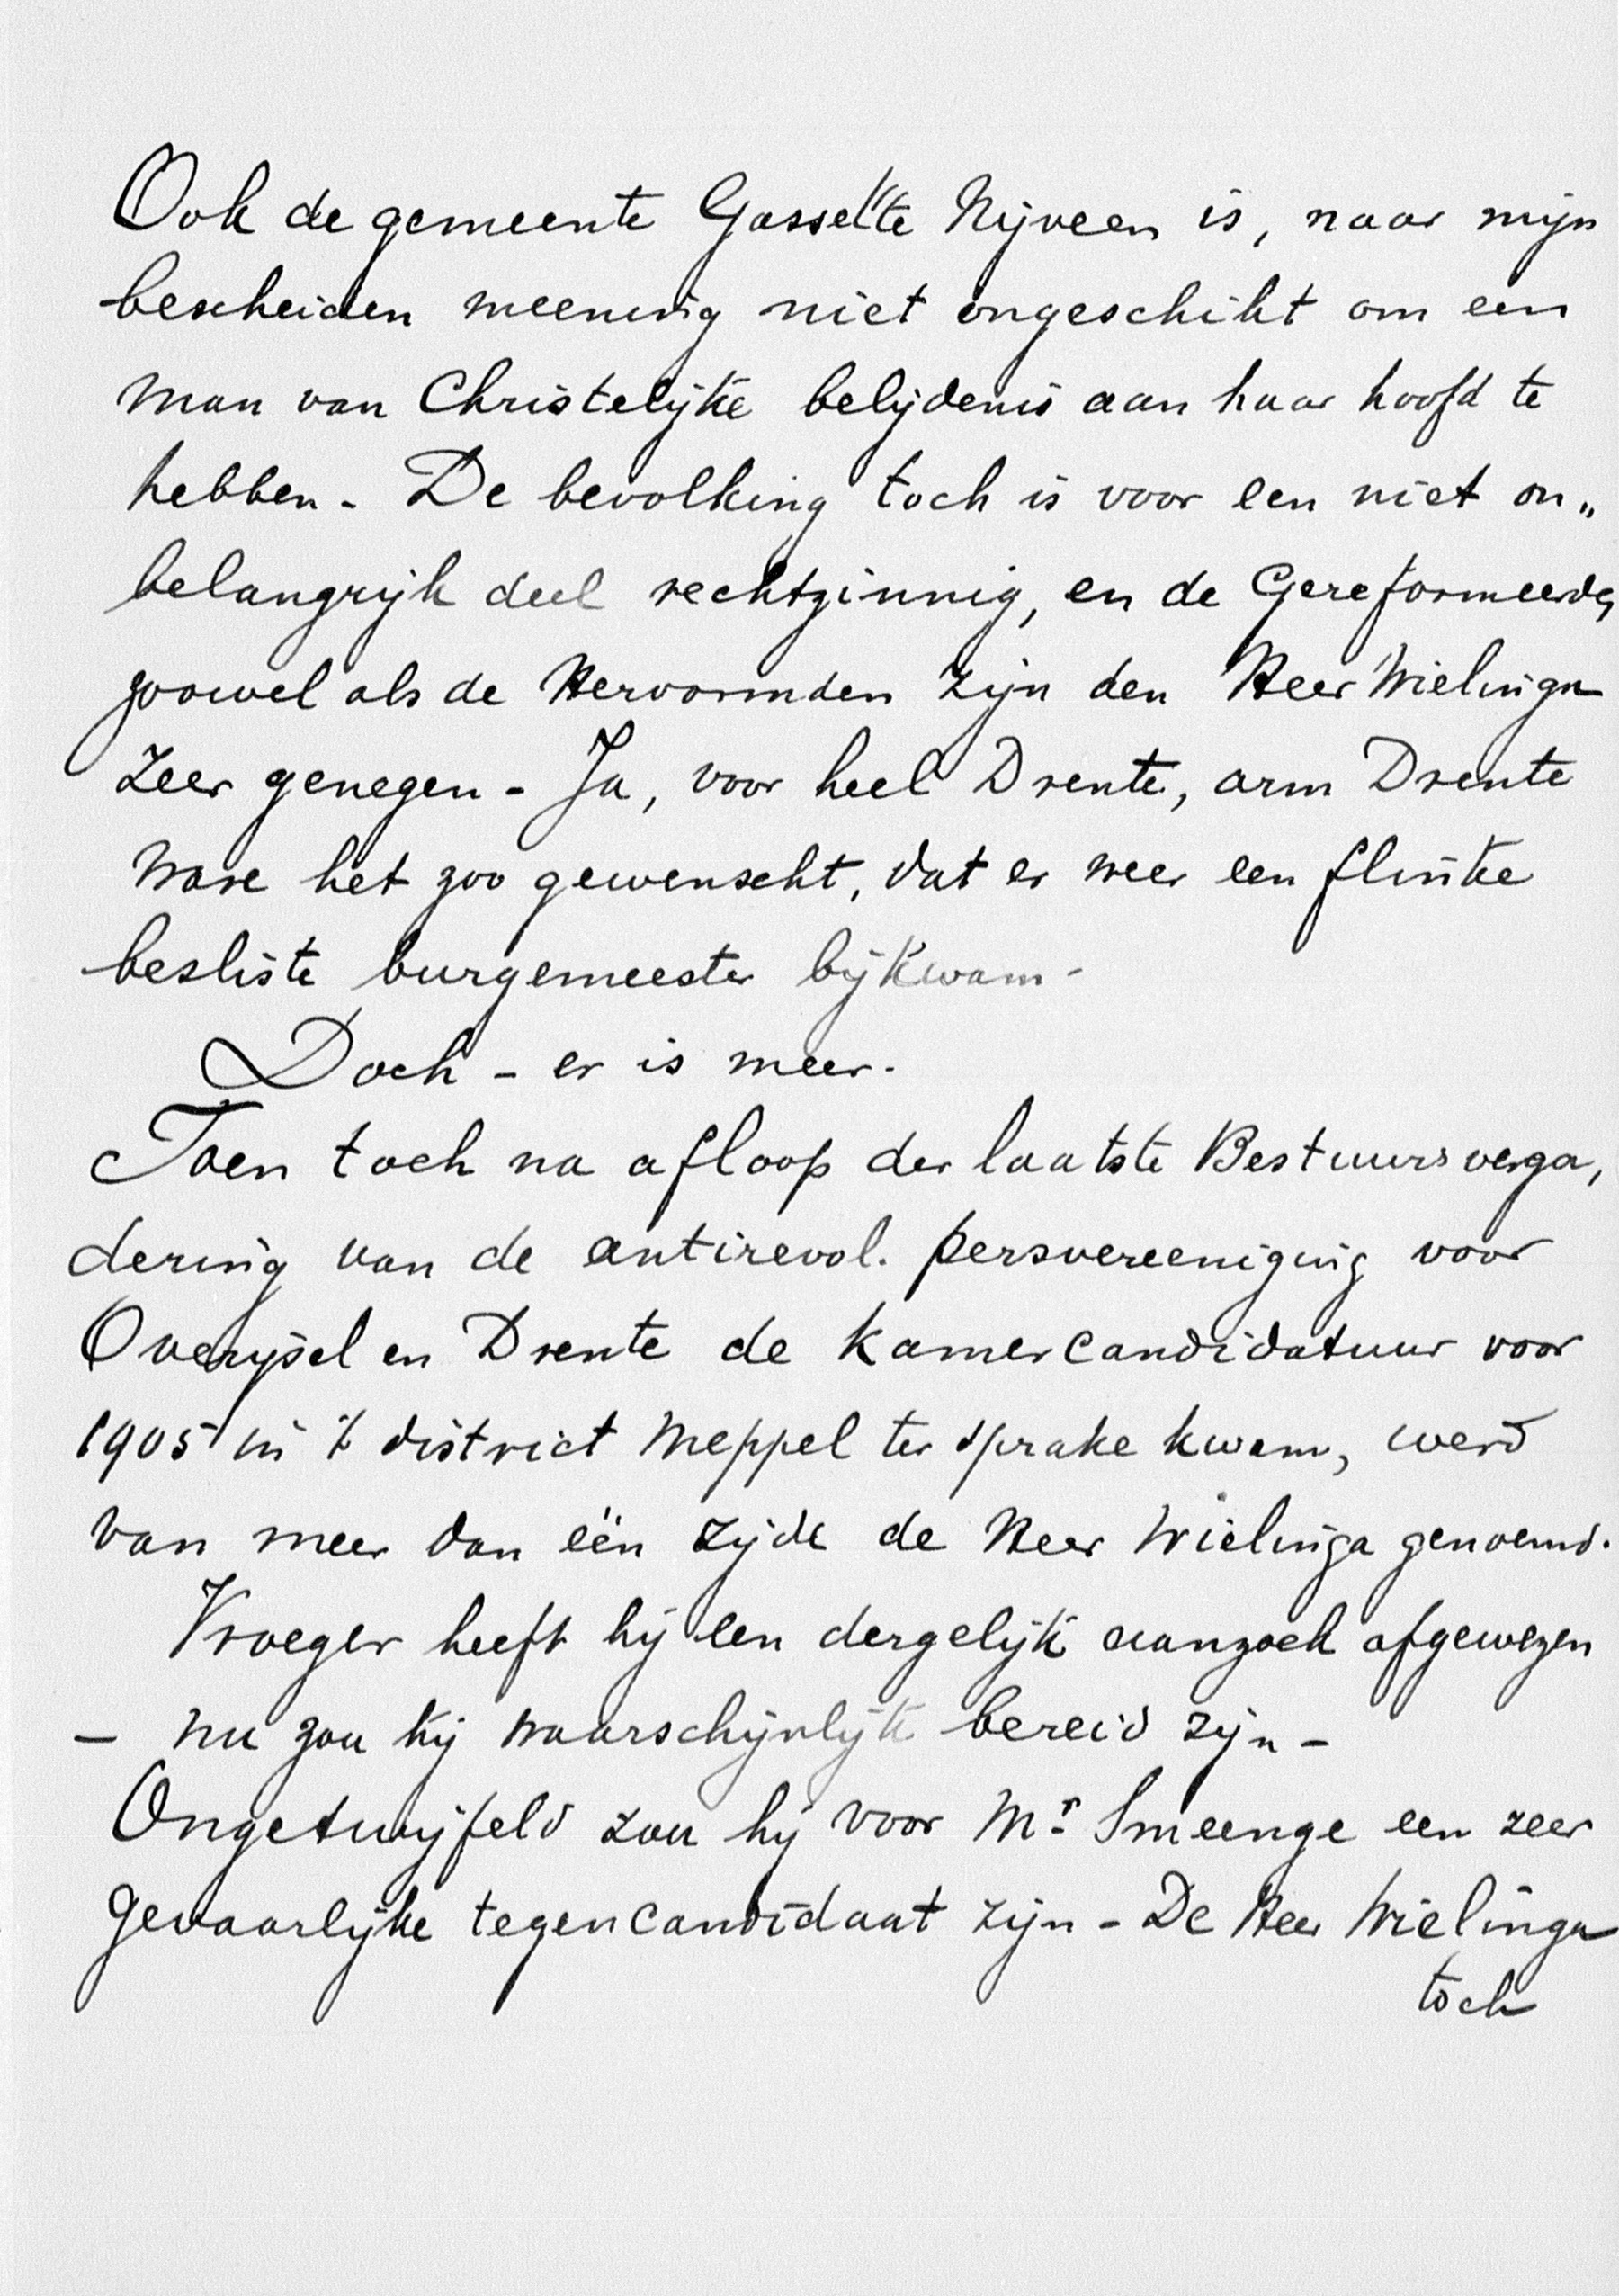 Ook de gemeente Gasselte Nijveen is, naar mijn
bescheiden meening niet ongeschikt om een
man van Christelijke belijdenis aan haar hoofd te
hebben - De bevolking toch is voor een niet on„
belangrijk deel rechtzinnig, en de Gereformeerden
zoowel als de Hervormden zijn den Heer Wielinga
zeer genegen - Ja, voor heel Drente, arm Drente
ware het zoo gewenscht, dat er weer een flinke
besliste burgemeester bijkwam -
Doch - er is meer.
Toen toch na afloop der laatste Bestuursverga,
dering van de antirevol. persvereeniging voor
Overijsel en Drente de Kamercandidatuur voor
1905 in 't district Meppel ter sprake kwam, werd
van meer dan één zijde de Heer Wielinga genoemd.
Vroeger heeft hij een dergelijk aanzoek afgewezen
- nu zou hij waarschijnlijk bereid zijn -
Ongetwijfeld zou hij voor Mr Smeenge een zeer
gevaarlijke tegencandidaat zijn - De Heer Wielinga
toch